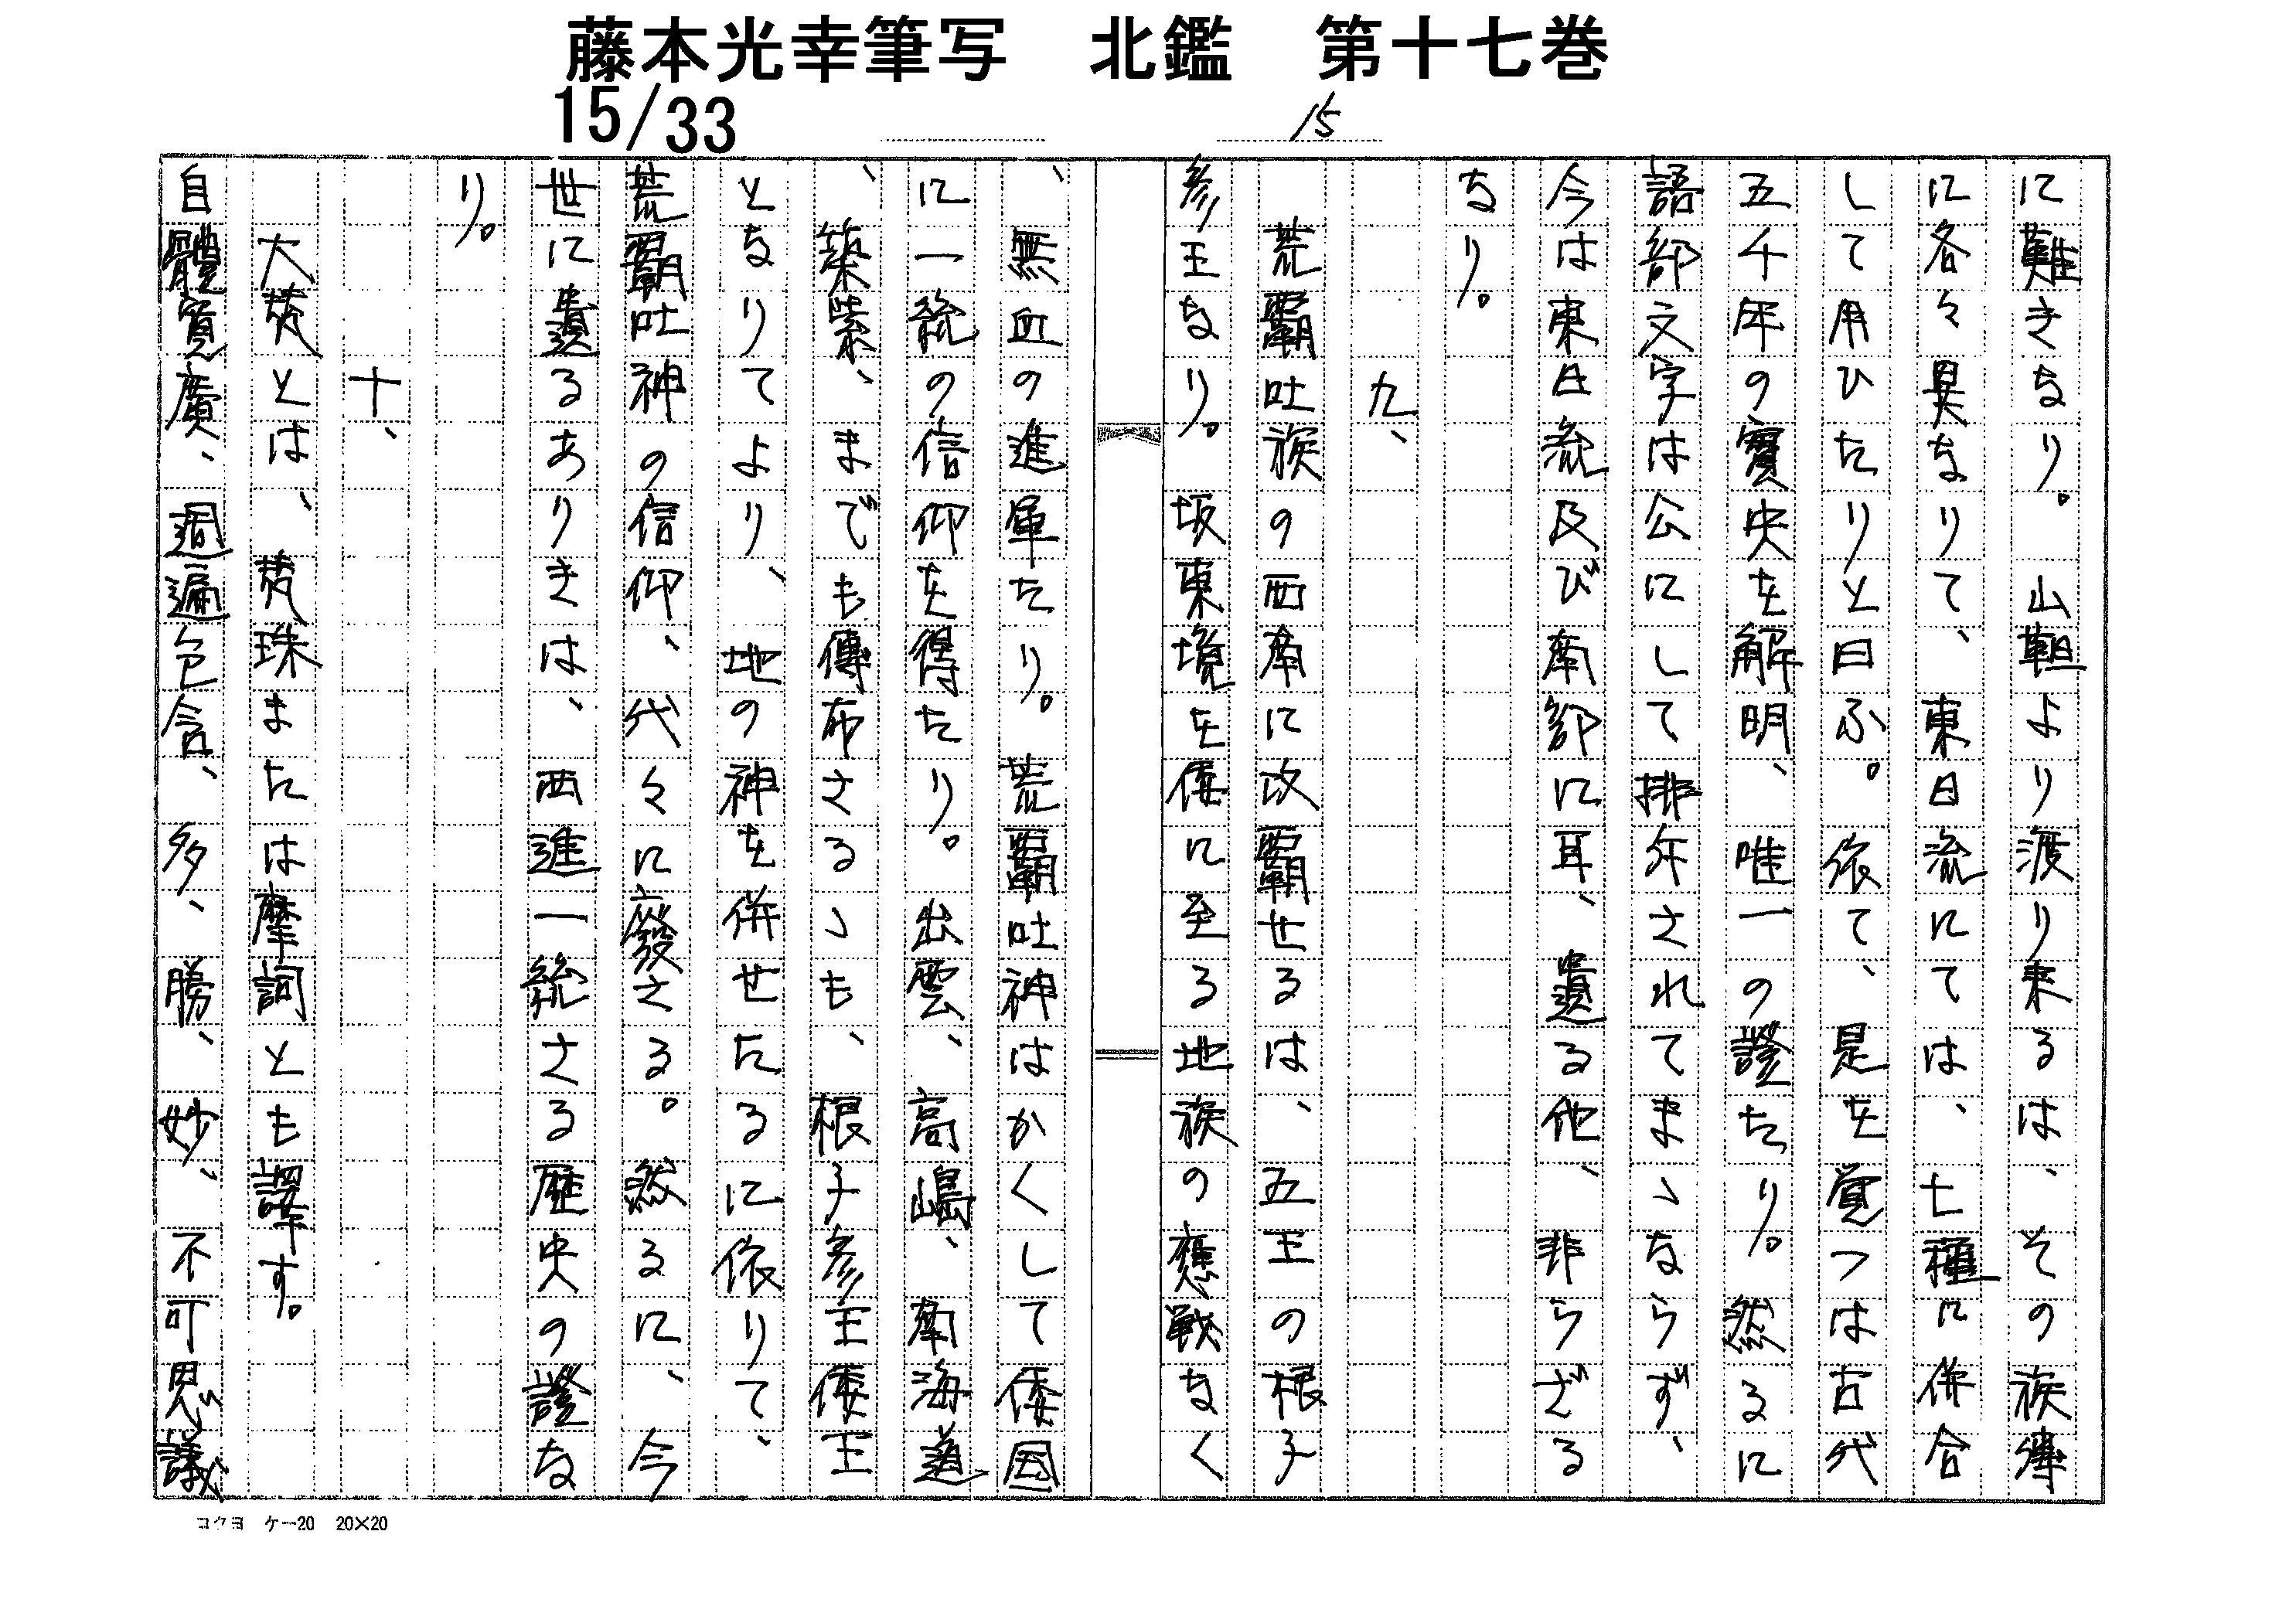 藤本光幸筆写　北鑑　第十七巻
15/33
15
に難きなり。山靼より渡り来るは、その族傳
に各々異なりて、東日流にては、七種に併合
して用ひたりと曰ふ。依て、是を覚つは古代
五千年の實史を解明、唯一の證たり。然るに
語部文字は公にして排斥されてまゝならず、
今は東日流及び南部に耳、遺る他、非らざる
なり。
九、
荒覇吐族の西南に改覇せるは、五王の根子
彦王なり。坂東境を倭に至る地族の應戦なく
、無血の進軍たり。荒覇吐神はかくして倭国
に一統の信仰を得たり。出雲、高嶋、南海道
、築紫、までも傳布さるゝも、根子彦王倭王
となりてより、地の神を併せたるに依りて、
荒覇吐神の信仰、代々に廢さる。然るに、今
世に遺るありきは、西進一統さる歴史の證な
り。
十、
大梵とは、梵珠または摩訶とも譯す。
自體寛廣、週遍包含、多、勝、妙、不可思議
コクヨ　ケー20　20×20